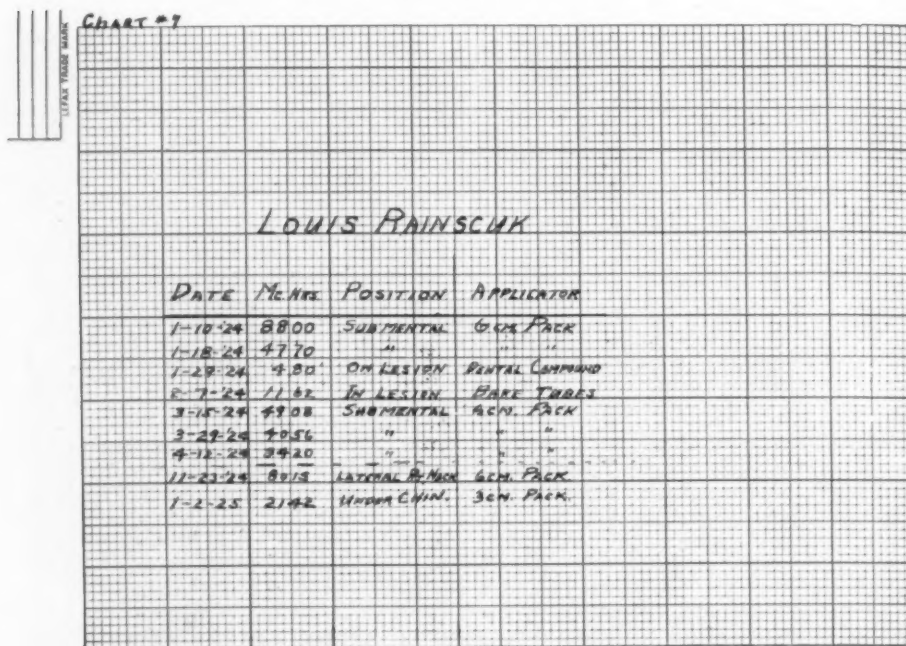 CHART #7
LIFAX TRADE MARK
LOUIS RAINSCUK
DATE MC. HRS. POSITION APPLICATOR
1-10-'24 8800 SUBMENTAL 6 CM. PACK
1-18-'24 4770 " " "
1-29-24 480 ON LESION DENTAL COMPOUND
2-7-'24 1162 IN LESION BARE TUBES
3-15-'24 4908 SUBMENTAL 6CM. PACK
3-29-'24 4056 " " "
4-12-'24 3420 " " "
11-23-'24 8015 LATERAL RT. NECK 6CM. PACK.
1-2-25 2142 UNDER CHIN. 3CM. PACK.